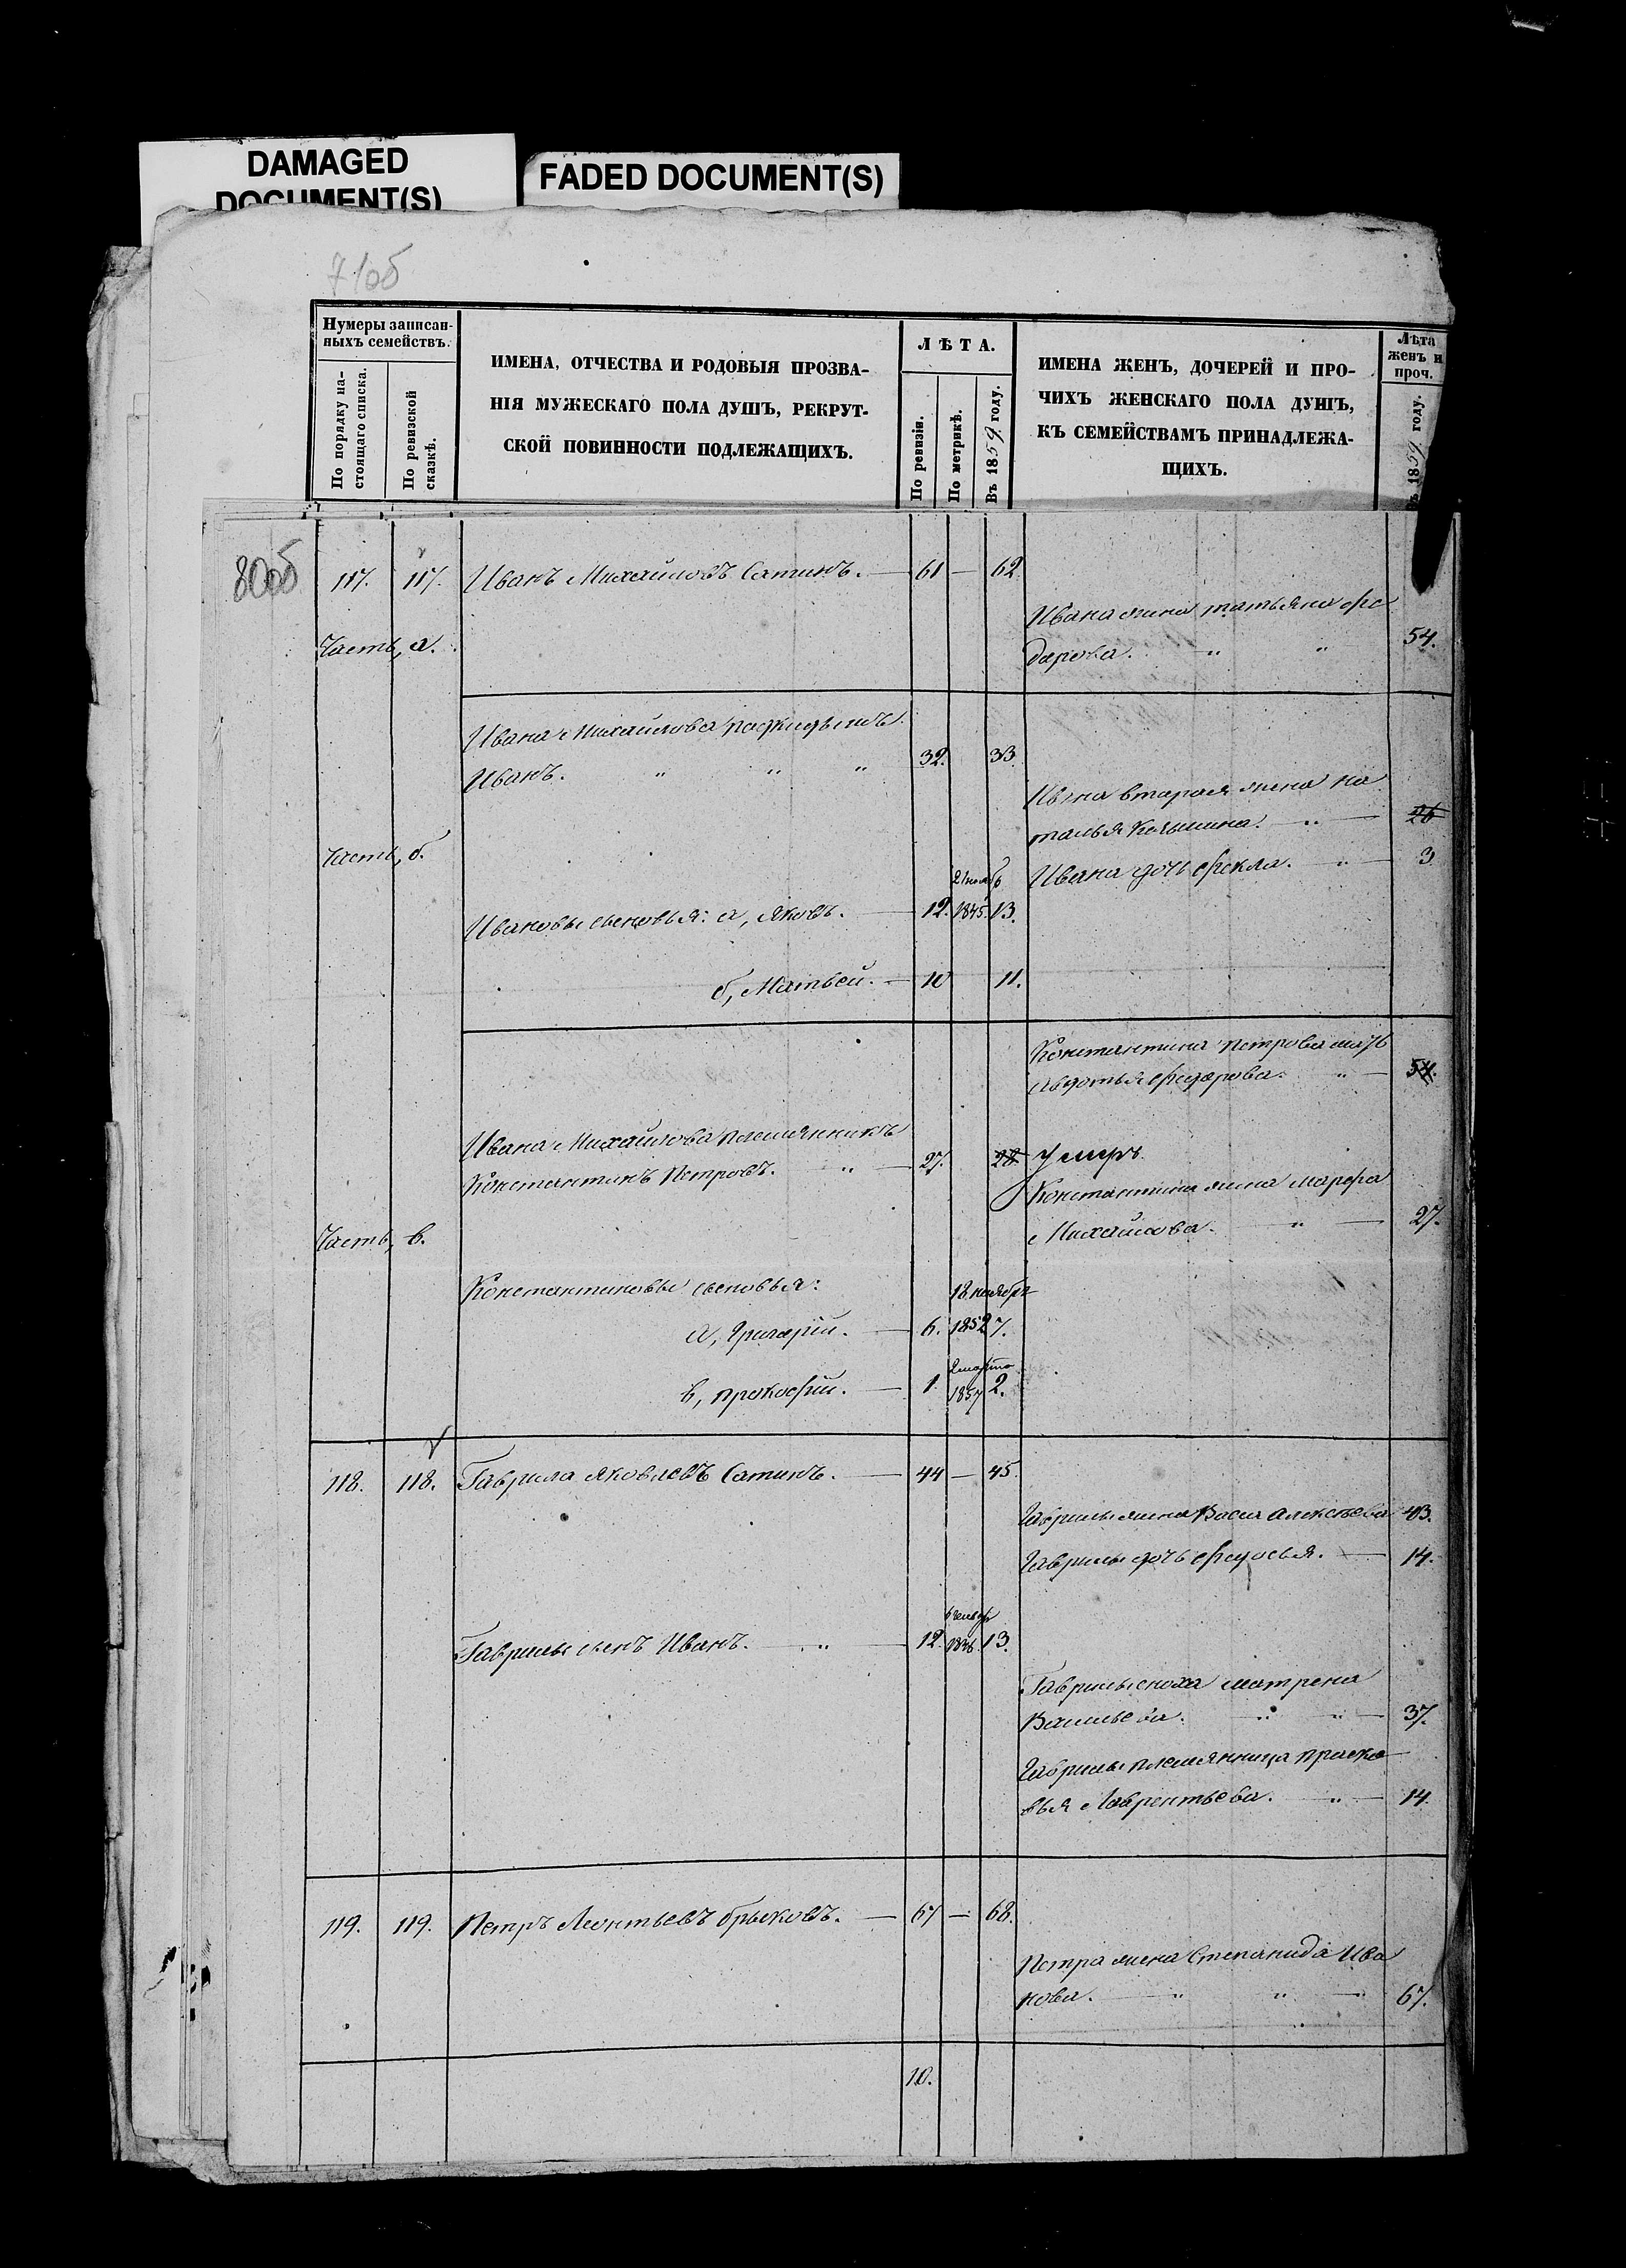 DAMAGED
DOCUMENT(S)
FADED DOCUMENT(S)
Нумеры записан-
ныхъ семействъ.
По порядку на-
стоящаго списка.
По ревизской
сказкѣ.
ИМЕНА, ОТЧЕСТВА И РОДОВЫЯ ПРОЗВА-
НІЯ МУЖЕСКАГО ПОЛА ДУШЪ, РЕКРУТ-
СКОЙ ПОВИННОСТИ ПОДЛЕЖАЩИХЪ.
ЛѢТА.
По ревизіи.
По метрикѣ.
Въ 1859 году.
ИМЕНА ЖЕНЪ, ДОЧЕРЕЙ И ПРО-
ЧИХЪ ЖЕНСКАГО ПОЛА ДУШЪ,
КЪ СЕМЕЙСТВАМЪ ПРИНАДЛЕЖА-
ЩИХЪ.
Лѣта
женъ и
проч.
Въ 1859 году.
80об
117. 117. Иванъ Михайловъ Сатинъ. — 61 — 62
Ивана жена татьяна фе
Часть, а. дарова. " " 54.
Ивана Михайлова
Иванъ. " " " 32. 33.
Ивана вторая жена на
талья . " — 26
Часть, б.
Ивана дочь фекла. " — 3
21 нояб
Ивановы сыновья: а, яковъ. — 12. 1845. 13.
б, Матвей. — 10 11.
Константина петрова мать
авдотья фидарова. " — 54.
Ивана Михайлова племянникъ
Константинъ Петровъ. " — 27. 28 умеръ
Константина жена марфа
Михайлова. " — 27.
Часть, в.
Константиновы сыновья: 18 ноября
а, григорiй. — 6. 1852 7.
2 марта
в, прокофiй. — 1 1857 2.
118. 118. Гаврила яковлевъ Сатинъ. — 44 — 45.
Гаврилы жена Васса алексѣева 43.
Гаврилы дочь федосья. — 14.
Гаврилы сынъ Иванъ. — " — 12. 1846. 13.
Гаврилы сноха матрена
Васильева. " " — 37.
Гаврилы племянница праско
вья Лаврентьева. " — 14.
119. 119. Петръ Леонтьевъ брыковъ. — 67 — 68.
Петра жена Степанида Ива
нова. — " " — 67.
10.